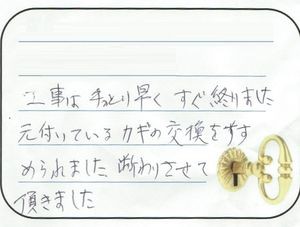 工事は手っとり早くすぐ終りました
元付いているカギの交換をすす
められました 断わりさせて
頂きました